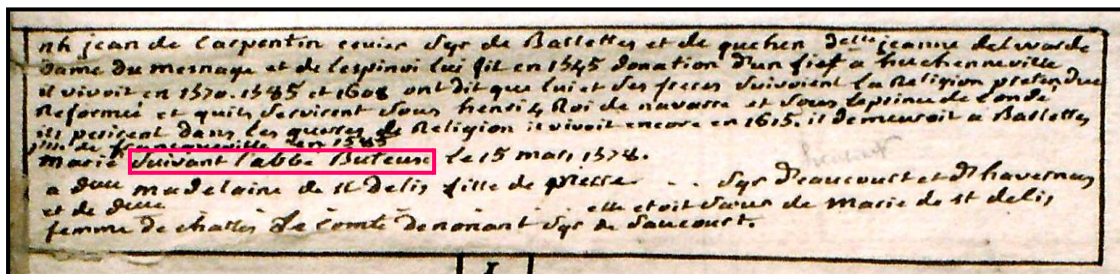 nh jean de Carpentin ecuier Sgr de Barlettes et de quehen delle jeanne del warde
dame du mesnage et de lespinoi lui fit en 1545 donation d'un fief a huchenneville
il vivoit en 1570. 1585 et 1608 ont dit que lui et ses freres suivoient la Religion pretendue
Reformée et quils servirent sous henri 4 Roi de navarre et sous le prince de Condé
ils perirent dans les guerres de Religion il vivoit encore en 1615. il demeuroit a Barlettes
en 1585
Marié suivant l'abbé Buteux le 15 mars 1578.
a delle madelaine de st delis fille de pierre .. Sgr d'eaucourt et d'havernas
et de delle elle etoit sœur de Marie de st delis
femme de charles Le comte de nonant Sgr de Saucourt.
I